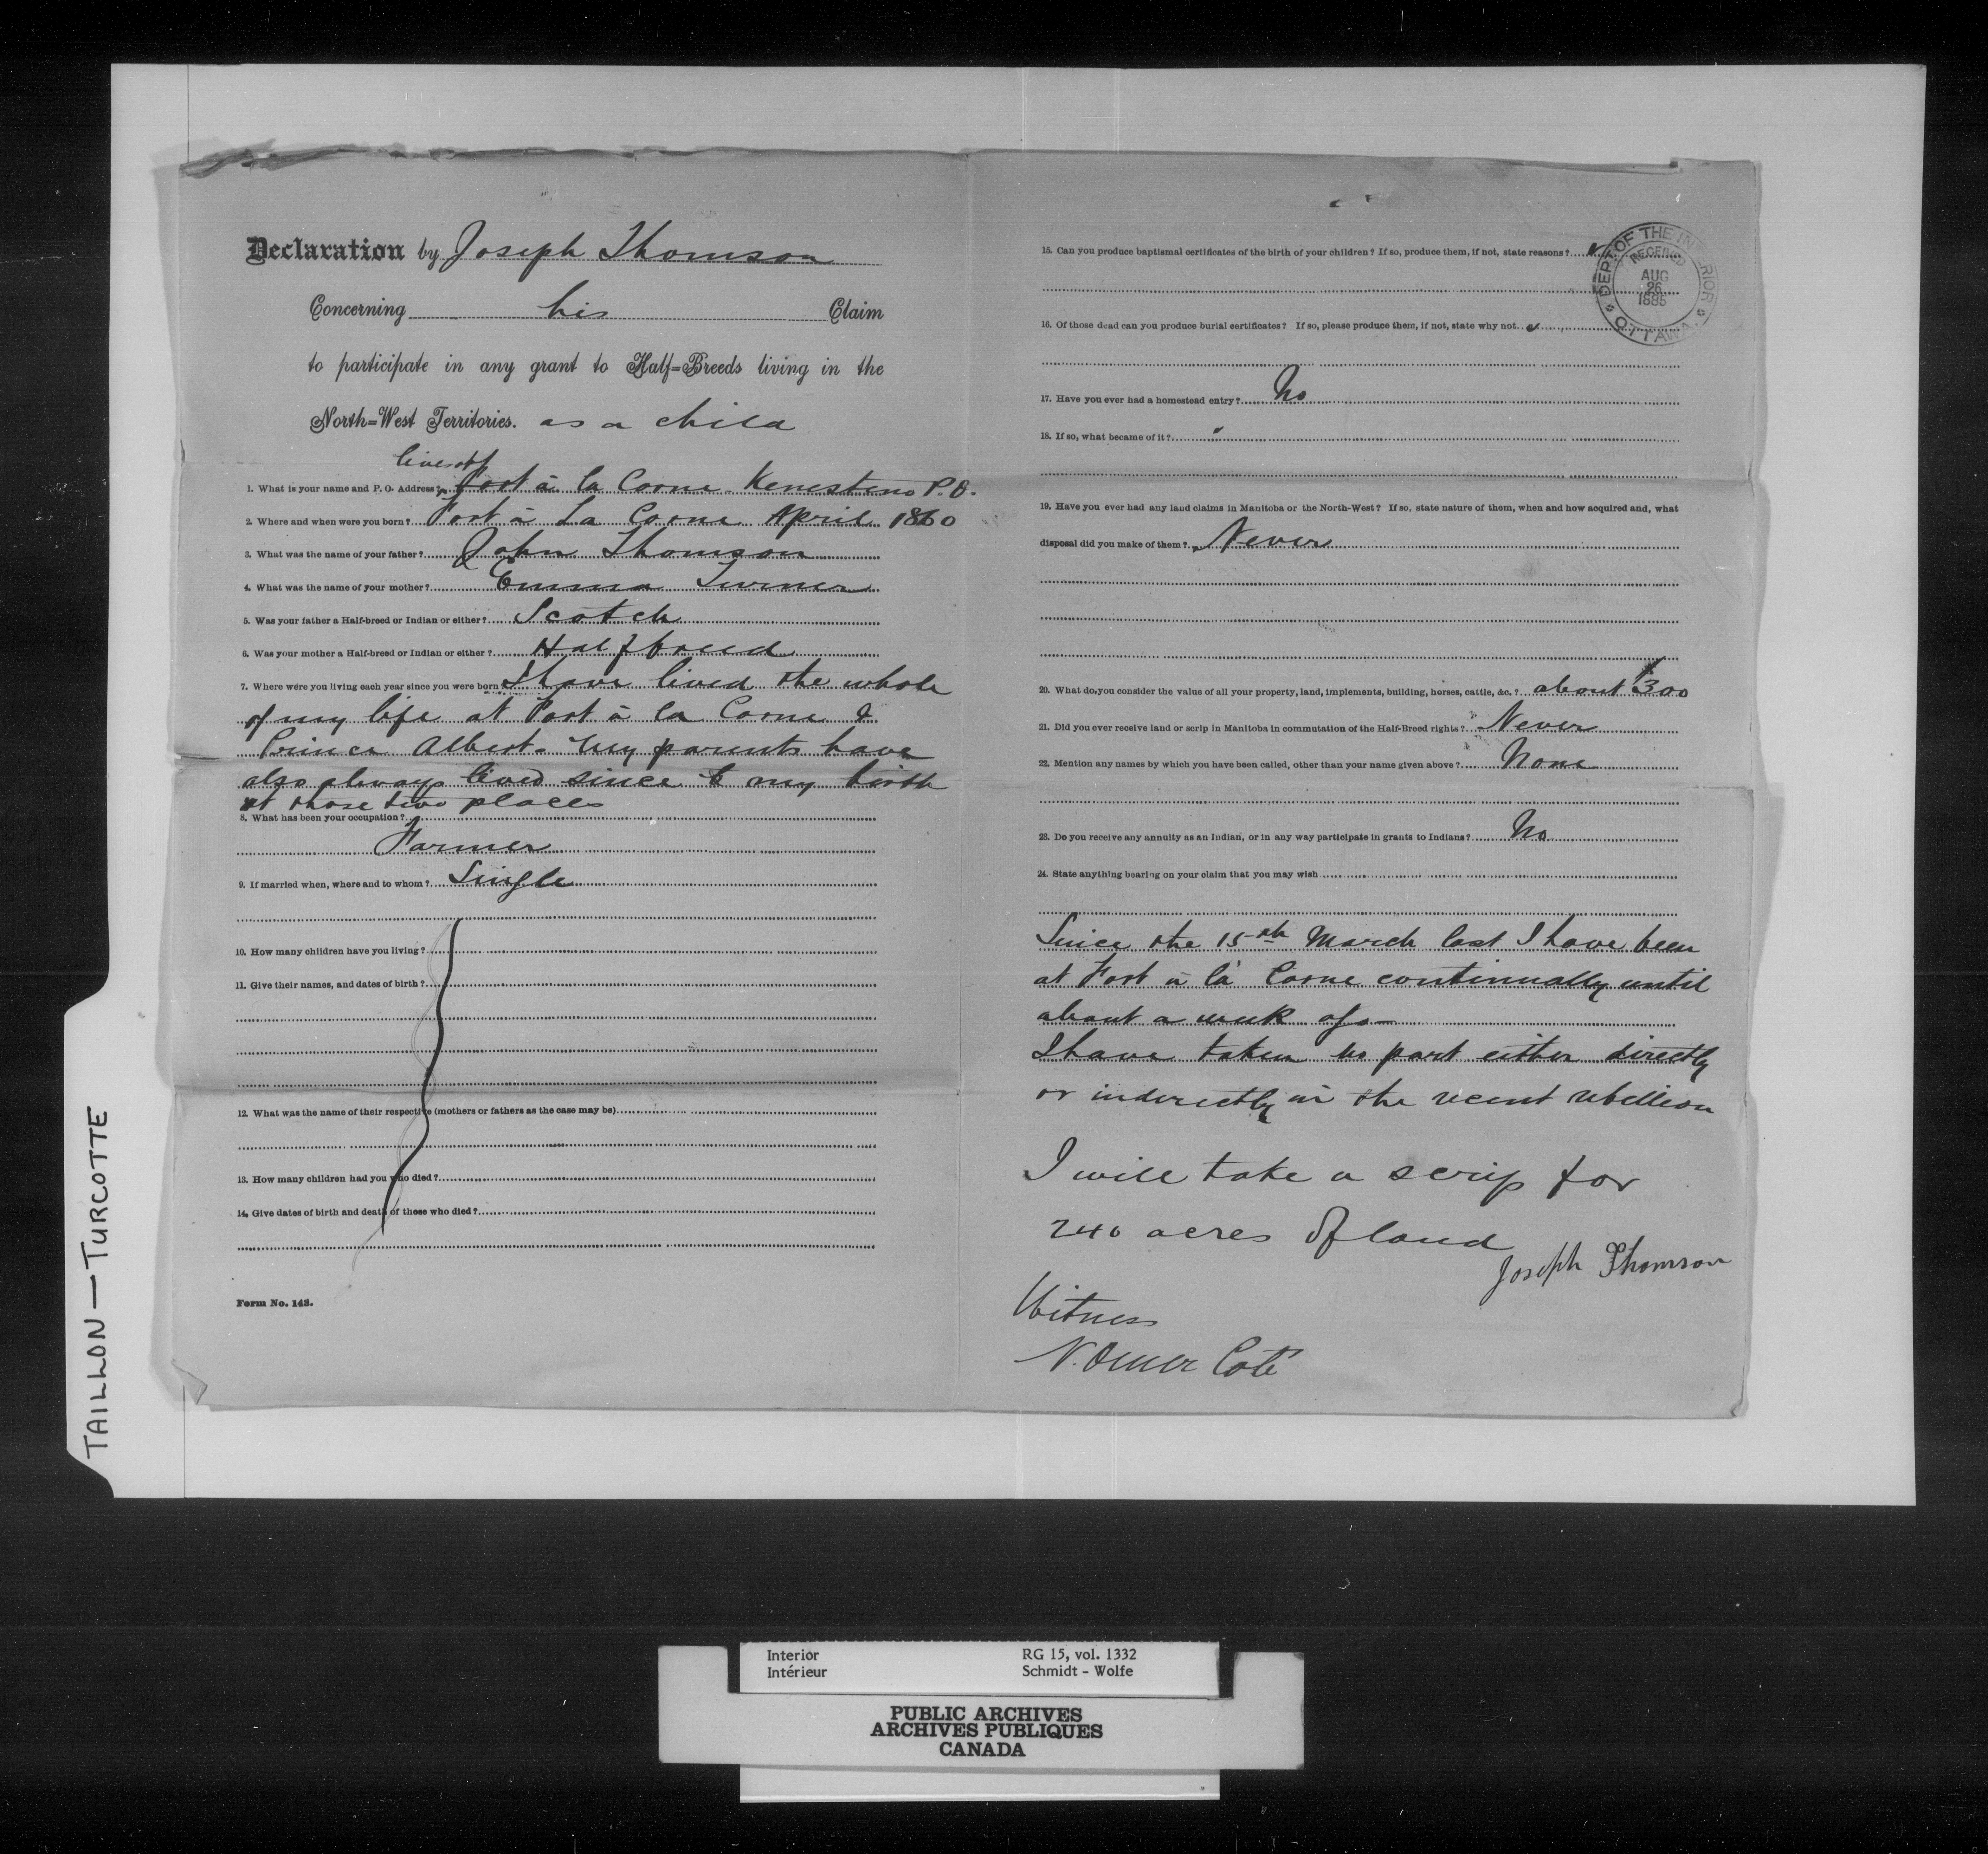 Declaration by Joseph Thomson
Concerning his Claim
to participate in any grant to Half=Breeds living in the
North=West Territories. as a child
lives at
1. What is your name and P. O. Address? Fort à la Corne Kenesteno P.O.
2. Where and when were you born? Fort à La Corne April 1860
3. What was the name of your father? John Thomson
4. What was the name of your mother? Emma Turner
5. Was your father a Half-breed or Indian or either? Scotch
6. Was your mother a Half-breed or Indian or either? Halfbreed
7. Where were you living each year since you were born I have lived the whole
of my life at Fort à la Corne &
Prince Albert. My parents have
also always lived since my birth
at those two places
8. What has been your occupation?
Farmer
9. If married when, where and to whom? Single
10. How many children have you living?
11. Give their names, and dates of birth?
12. What was the name of their respective (mothers or fathers as the case may be)
13. How many children had you who died?
14. Give dates of birth and death of those who died?
Form No. 143.
15. Can you produce baptismal certificates of the birth of your children? If so, produce them, if not, state reasons?
16. Of those dead can you produce burial certificates? If so, please produce them, if not, state why not.
17. Have you ever had a homestead entry? No
18. If so, what became of it? "
19. Have you ever had any land claims in Manitoba or the North-West? If so, state nature of them, when and how acquired and, what
disposal did you make of them? Never
20. What do you consider the value of all your property, land, implements, building, horses, cattle, &c.? about $300
21. Did you ever receive land or scrip in Manitoba in commutation of the Half-Breed rights? Never
22. Mention any names by which you have been called, other than your name given above? None
23. Do you receive any annuity as an Indian, or in any way participate in grants to Indians? No
24. State anything bearing on your claim that you may wish
Since the 15th March last I have been
at Fort à la Corne continually until
about a week ago—
I have taken no part either directly
or indirectly in the recent rebellion
I will take a scrip for
240 acres of land
Joseph Thomson
Witness
N. Omer Coté
DEPT OF THE INTERIOR
RECEIVED
AUG
26
1885
OTTAWA
TAILLON — TURCOTTE
Interior RG 15, vol. 1332
Intérieur Schmidt - Wolfe
PUBLIC ARCHIVES
ARCHIVES PUBLIQUES
CANADA